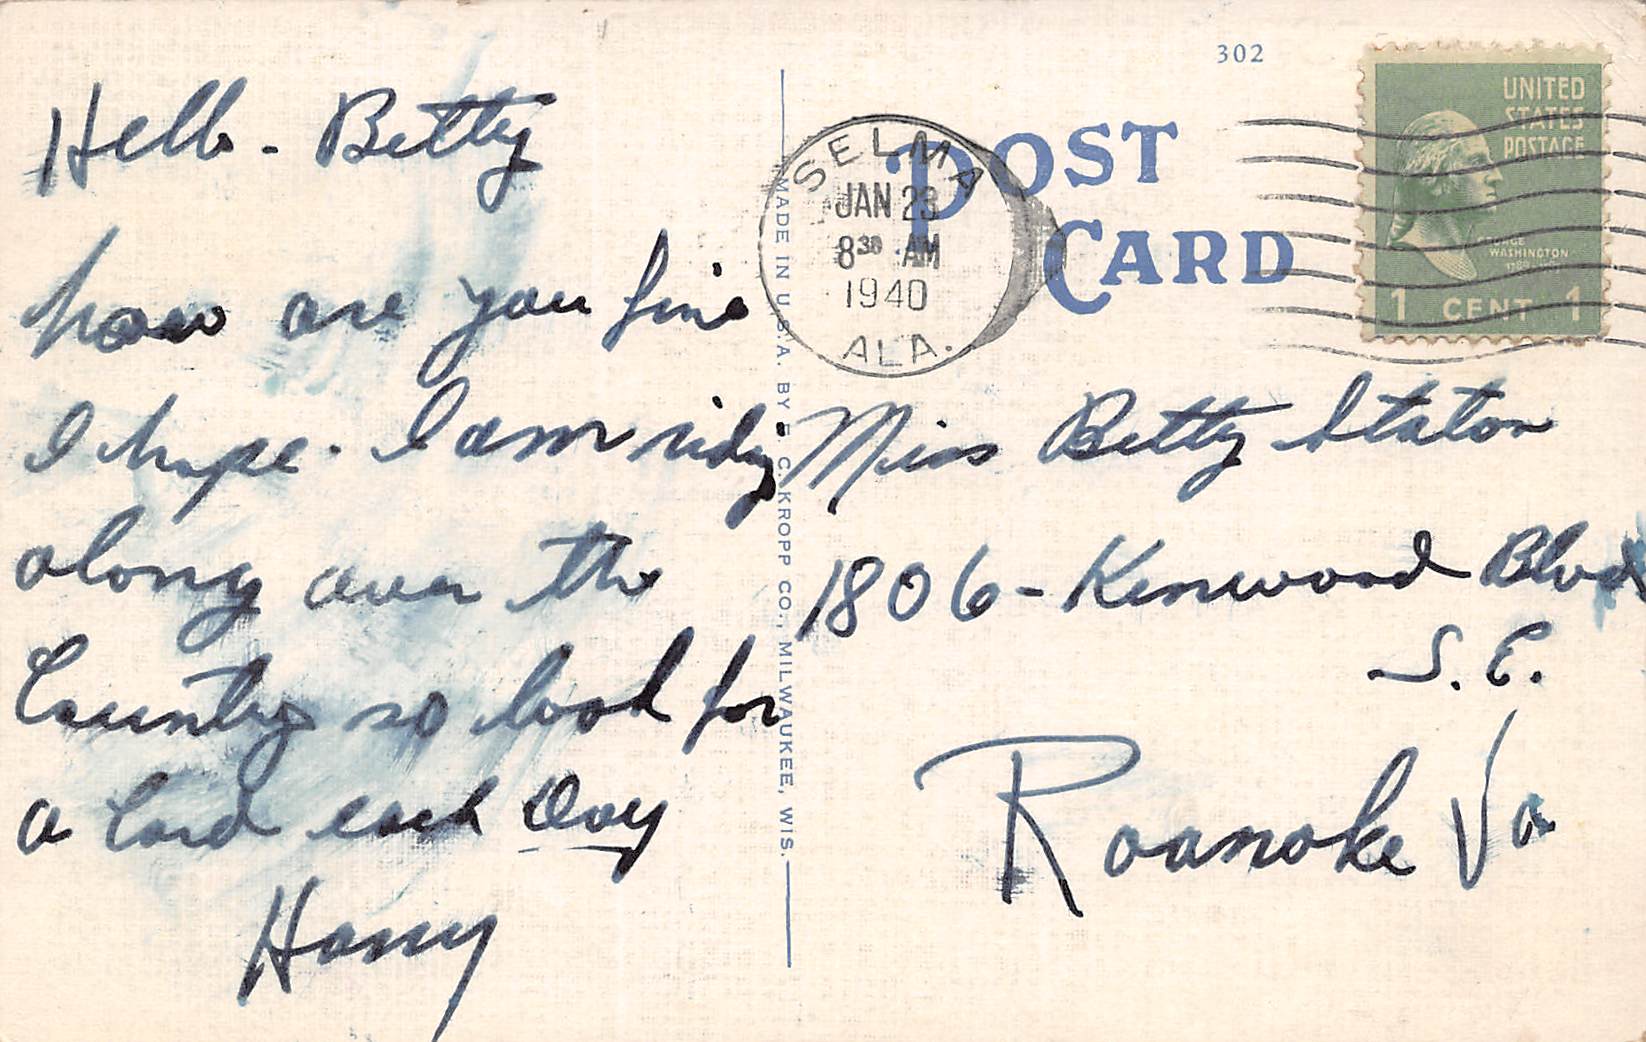 Hello - Betty
how are you fine
I hope. I am riding
along over the
Country so look for
a Card each Day
Harry
MADE IN U.S.A. BY E. C. KROPP CO., MILWAUKEE, WIS.
302
POST
CARD
SELMA
JAN 23
8 30 AM
1940
ALA.
UNITED
STATES
POSTAGE
GEORGE
WASHINGTON
1 CENT 1
Miss Betty Staton
1806 - Kenwood Blvd
S.E.
Roanoke Va